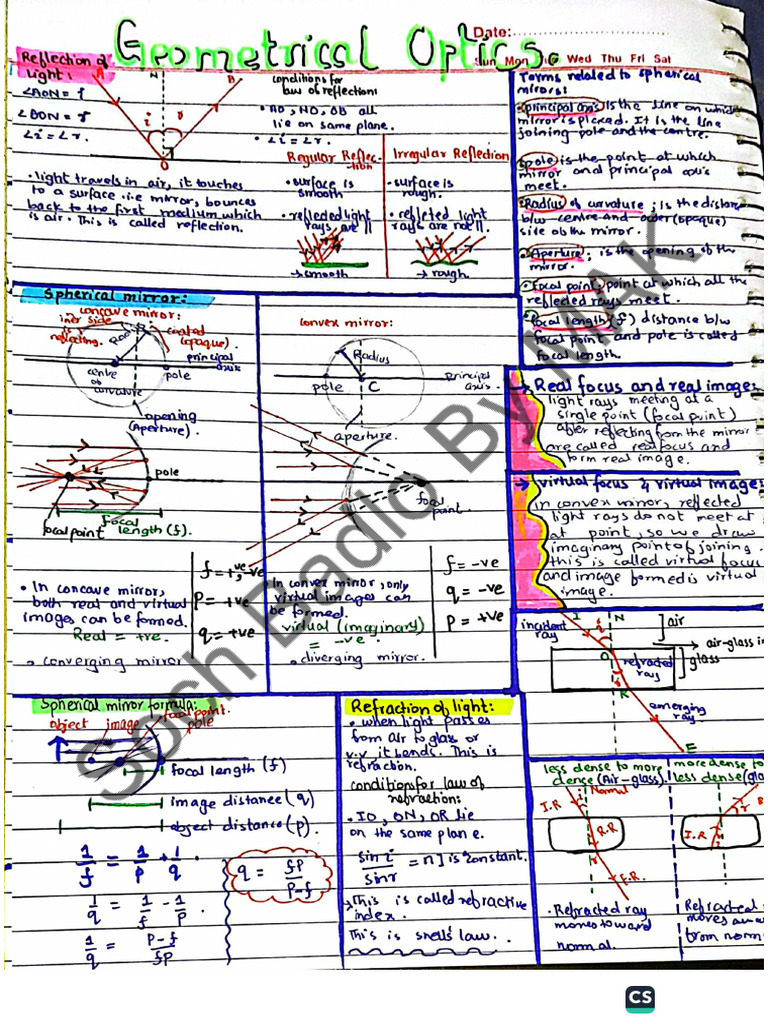 Geometrical Optics.
Date:
Sun Mon Tue Wed Thu Fri Sat
Reflection of
Light:
A
N
B
i
r
O
∠AON = i
∠BON = r
∠i = ∠r.
conditions for
law of reflection:
• AO, NO, OB all
lie on same plane.
• ∠i = ∠r.
• light travels in air, it touches
to a surface .i.e mirror, bounces
back to the first medium which
is air. This is called reflection.
Regular Reflec-
tion
• surface is
smooth
• reflected light
rays are ||
→ smooth
Irregular Reflection
• surface is
rough.
• refleted light
rays are not ||.
→ rough.
Terms related to spherical
mirrors:
• principal axis is the line on which
mirror is placed. It is the line
joining pole and the centre.
• pole is the point at which
mirror and principal axis
meet.
• Radius of curvature; is the distan
b/w centre and outer (opaque)
side of the mirror.
• Aperture; is the opening of the
mirror.
• focal point; point at which all the
reflected rays meet.
• focal length (f) distance b/w
focal point and pole is called
focal length.
Spherical mirror:
concave mirror:
iner side
is
reflecting.
coated
(opaque).
principal
axis
centre
of
curvature
pole
opening
(Aperture).
pole
focal point
focal
length (f).
• In concave mirror,
both real and virtual
images can be formed.
Real = +ve.
• converging mirror
f = +ve, -ve
p = +ve
q = +ve
convex mirror:
Radius
pole
C
principal
axis.
aperture.
focal
point.
• In convex mirror, only
virtual images can
be formed.
virtual (imaginary)
= -ve.
• diverging mirror.
f = -ve
q = -ve
p = +ve
→ Real focus and real image:
light rays meeting at a
single point (focal point)
after reflecting from the mirror
are called real focus and
form real image.
→ virtual focus & virtual image:
in convex mirror, reflected
light rays do not meet at
at point, so we draw
imaginary point of joining.
this is called virtual focus
and image formed is virtual
image.
incident
ray
I
i
N
air
air-glass in
O
refracted
ray
glass
r
R
emerging
ray
E
Spherical mirror formula:
object
image
focal point.
pole
focal length (f)
image distance (q)
object distance (p).
1/f = 1/p + 1/q.
1/q = 1/f - 1/p.
1/q = p-f/fp
q = fp/p-f
Refraction of light:
• when light passes
from air to glass or
v.v it bends. This is
refraction.
conditions for law of
refraction:
• IO, ON, OR lie
on the same plane.
sin i/sin r = n] is constant.
→ This is called refractive
index.
This is snell's law.
less dense to more
dense (Air-glass).
Normal
I.R
i
R.R
r
E.R.
• Refracted ray
moves toward
normal.
more dense to
less dense (gla
I.R
i
r
R
Refracted
moves awa
from norm
Soch Badlo By MAK
CS